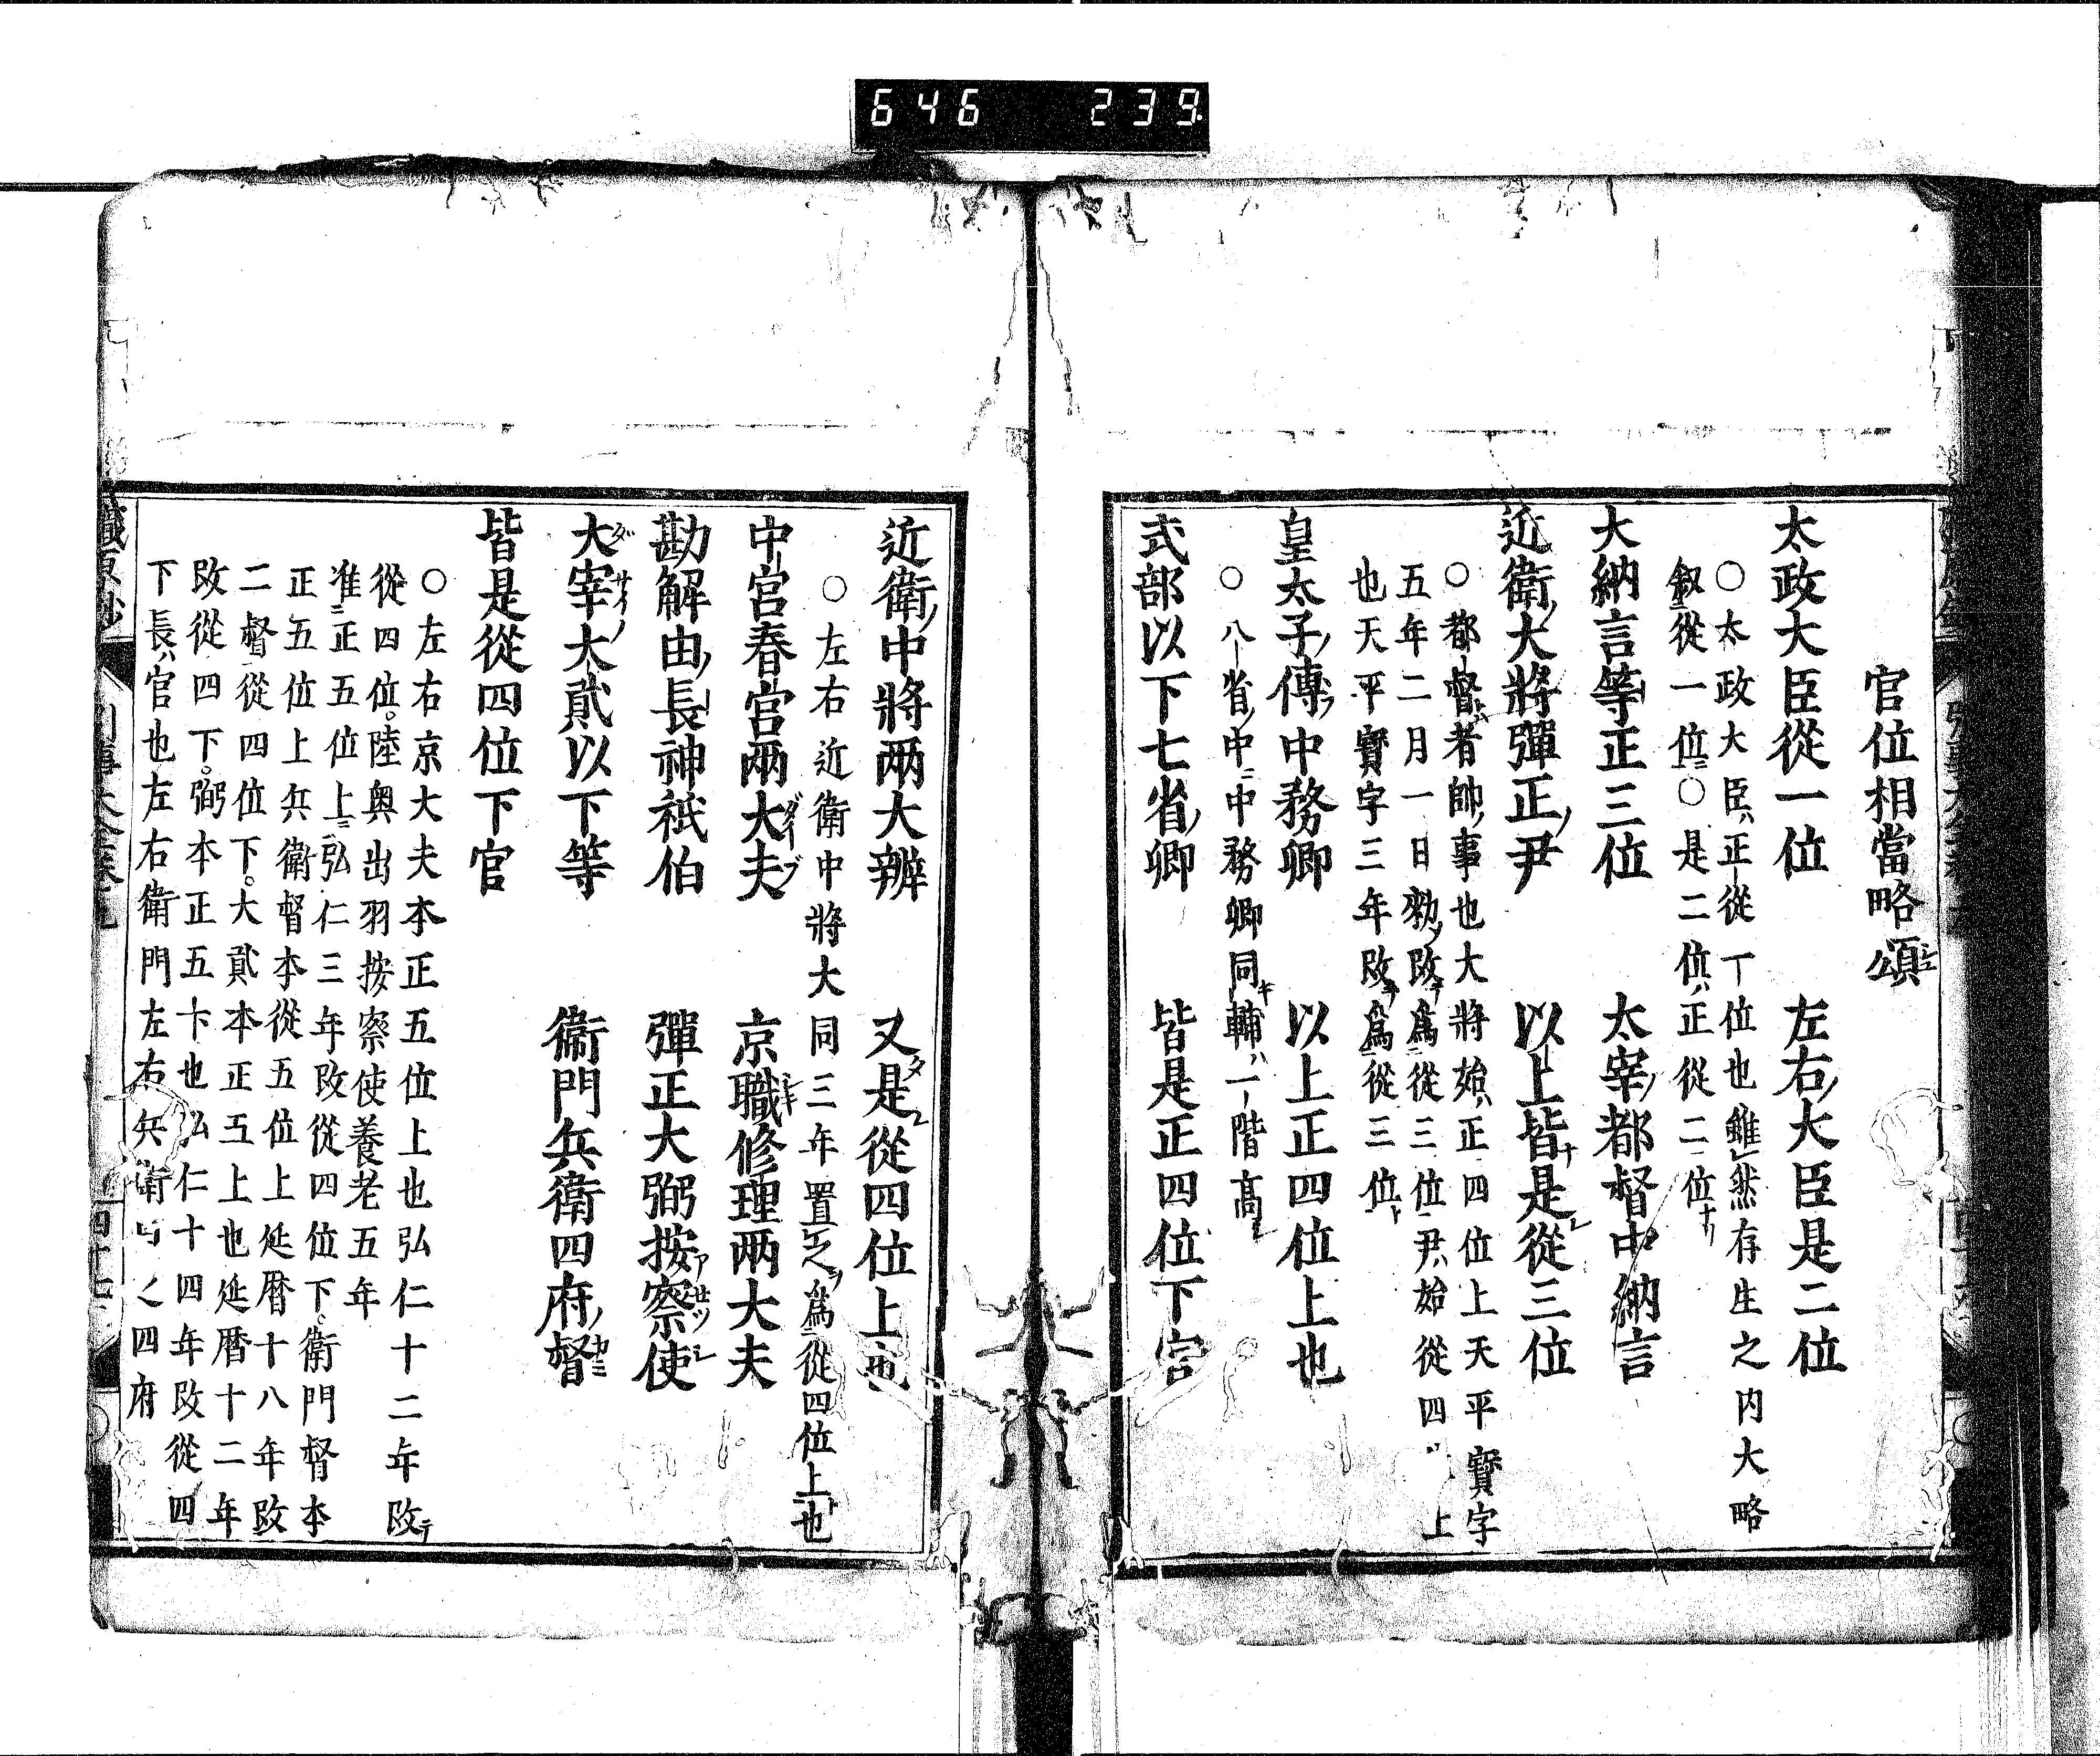 646 239
官位相當略頌
太政大臣從一位 左右大臣是二位
○太政大臣正從一位也雖然存生之内大略
叙從一位○是二位正從二位
大納言等正三位 太宰都督中納言
近衛大將彈正尹 以上皆是從三位
○都督者帥事也大將始正四位上天平寶字
五年二月一日勅改爲從三位尹始從四 上
也天平寶字三年改爲從三位
皇太子傅中務卿 以上正四位上也
○八省中中務卿同輔一階高
式部以下七省卿 皆是正四位下官
近衛中將兩大辨 又是從四位上也
○左右近衛中將大同三年置之爲從四位上也
中宮春宮兩大夫 京職修理兩大夫
勘解由長神祇伯 彈正大弼按察使
大宰大貳以下等 衞門兵衛四府督
皆是從四位下官
○左右京大夫本正五位上也弘仁十二年改
從四位陸奥出羽按察使養老五年
准正五位上弘仁三年改從四位下衛門督本
正五位上兵衛督本從五位上延暦十八年改
二督從四位下大貳本正五上也延暦十二年
改從四下弼本正五下也弘仁十四年改從四
下長官也左右衛門左右兵衛 四府
職原鈔 引事大全卷九 四十七